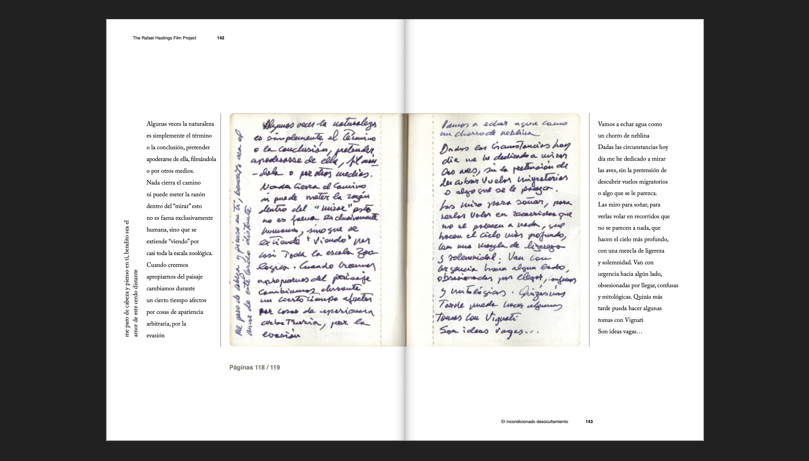 The Rafael Hastings Film Project 142
me paro de cabeza y pienso en ti, bendito sea el
amor de este cerdo distante
Algunas veces la naturaleza
es simplemente el término
o la conclusión, pretender
apoderarse de ella, filmándola
o por otros medios.
Nada cierra el camino
ni puede meter la razón
dentro del "mirar" esto
no es faena exclusivamente
humano, sino que se
extiende "viendo" por
casi toda la escala zoológica.
Cuando creemos
apropiarnos del paisaje
cambiamos durante
un cierto tiempo afectos
por cosas de apariencia
arbitraria, por la
evasión
Me paro de cabeza y pienso en ti, bendito sea el
amor de este cerdo distante
Algunas veces la naturaleza
es simplemente el término
o la conclusión, pretender
apoderarse de ella, filmán
-dola o por otros medios.
Nada cierra el camino
ni puede meter la razón
dentro del "mirar" esto
no es faena exclusivamente
humano, sino que se
extiende "viendo" por
casi toda la escala zoo
logica. Cuando creemos
apropiarnos del paisaje
cambiamos durante
un cierto tiempo afectos
por cosas de apariencia
arbitraria, por la
evasión
Vamos a echar agua como
un chorro de neblina
Dadas las circunstancias hoy
día me he dedicado a mirar
las aves, sin la pretensión de
descubrir vuelos migratorios
o algo que se le parezca.
Las miro para soñar, para
verlas volar en recorridos que
no se parecen a nada, que
hacen el cielo más profundo,
con una mezcla de ligereza
y solemnidad. Van con
urgencia hacia algún lado,
obsesionadas por llegar, confusas
y mitológicas. Quizás más
tarde pueda hacer algunas
tomas con Vignati
Son ideas vagas...
Vamos a echar agua como
un chorro de neblina
Dadas las circunstancias hoy
día me he dedicado a mirar
las aves, sin la pretensión de
descubrir vuelos migratorios
o algo que se le parezca.
Las miro para soñar, para
verlas volar en recorridos que
no se parecen a nada, que
hacen el cielo más profundo,
con una mezcla de ligereza
y solemnidad. Van con
urgencia hacia algún lado,
obsesionadas por llegar, confusas
y mitológicas. Quizás más
tarde pueda hacer algunas
tomas con Vignati
Son ideas vagas…
Páginas 118 / 119
El incondicionado desocultamiento 143